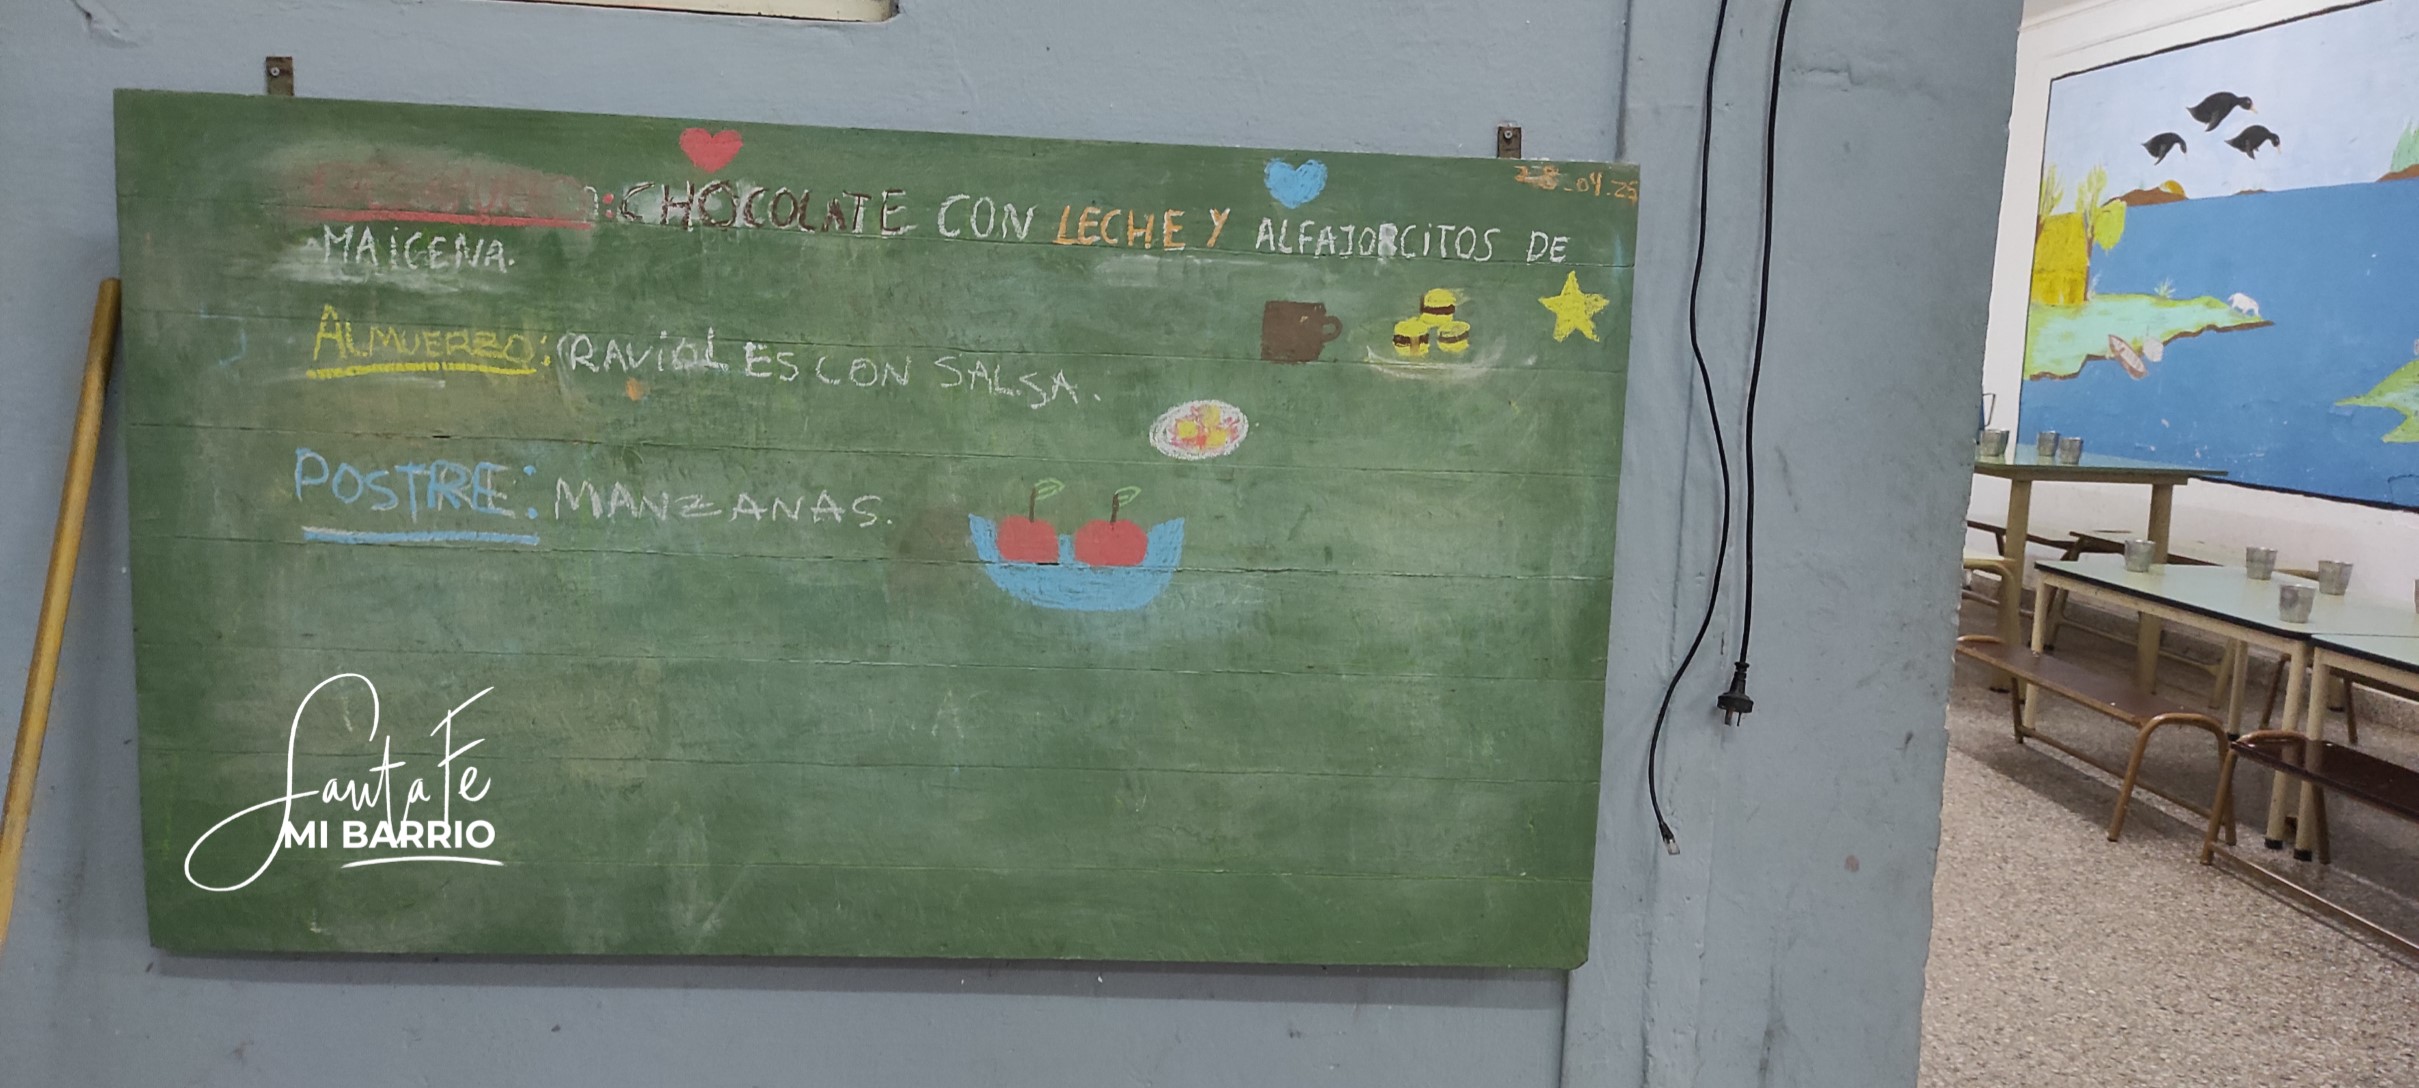 28-04-25
: CHOCOLATE CON LECHE Y ALFAJORCITOS DE
MAICENA.
ALMUERZO: RAVIOLES CON SALSA.
POSTRE: MANZANAS.
Santa Fe
MI BARRIO